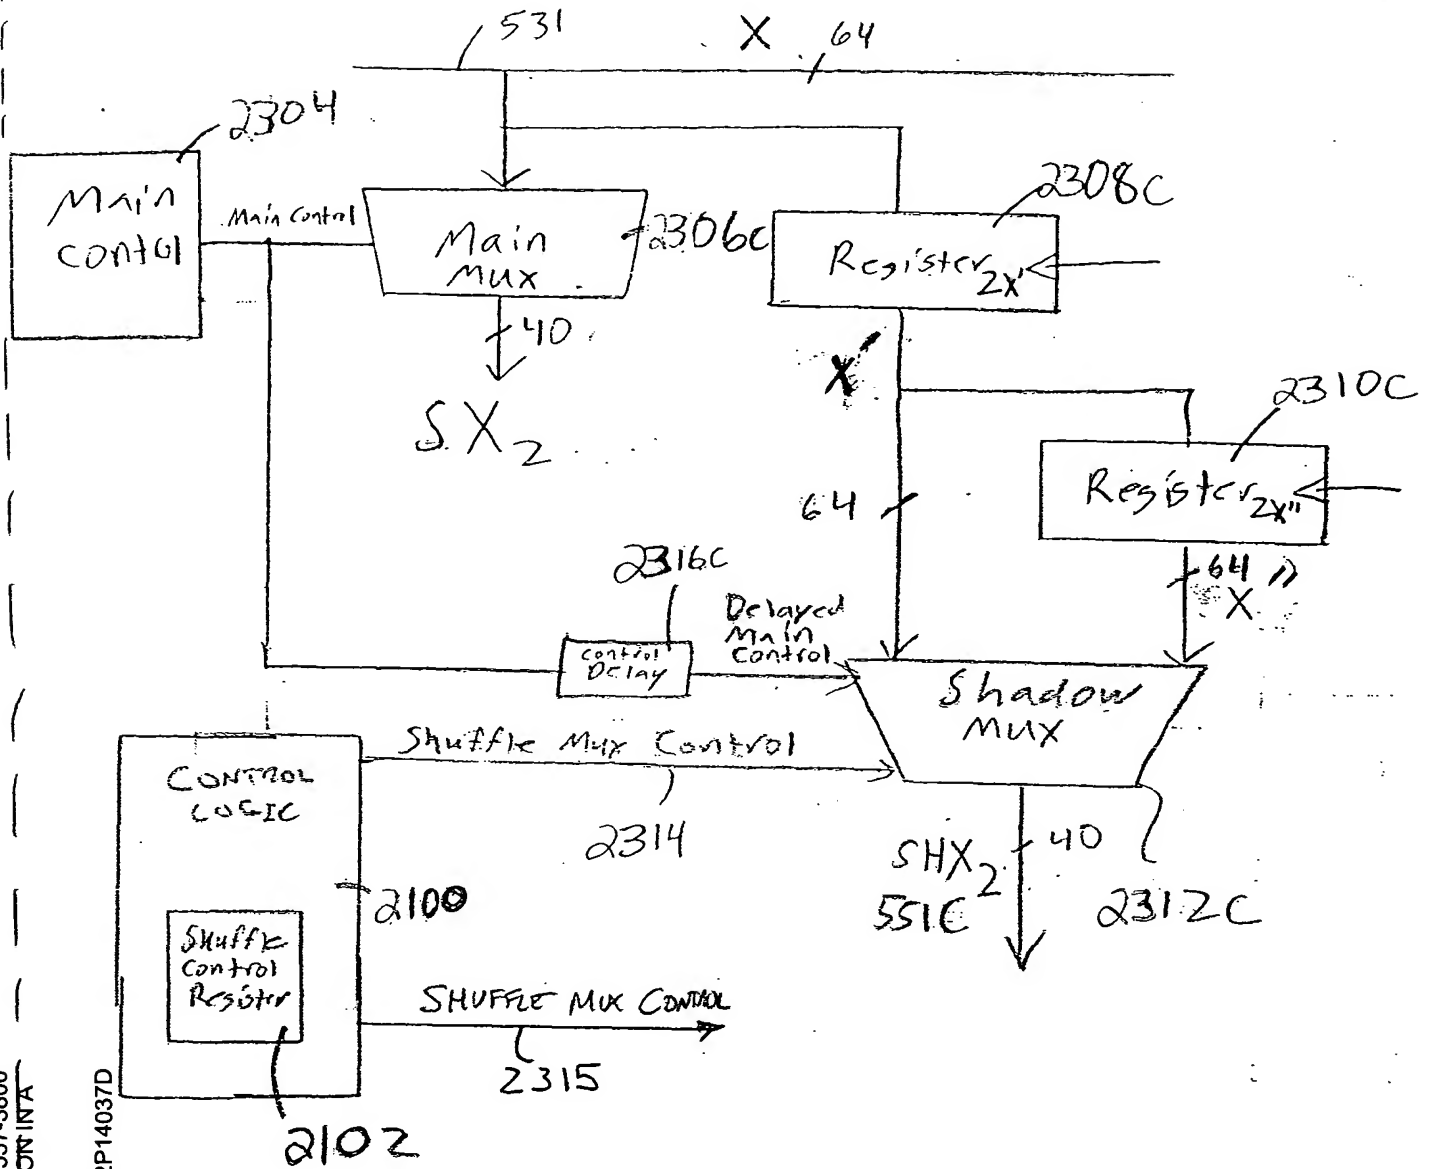 531
X
64
2304
Main
contol
Main Control
Main
Mux
2306C
2308C
Register 2X'
40
SX2
X'
2310C
Register 2X"
64
64
X"
2316C
Control
Delay
Delayed
Main
Control
Shadow
Mux
Shuffle Mux Control
2314
CONTROL
LOGIC
2100
SHX2
551C
40
2312C
Shuffle
Control
Register
SHUFFLE MUX CONTROL
2315
2102
ON IN A
2P14037D